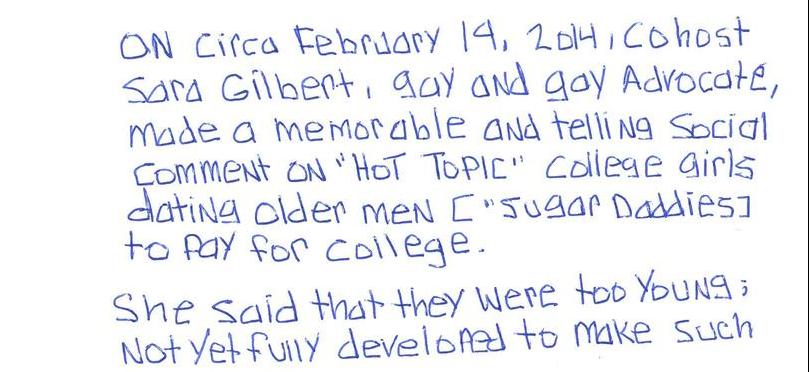 ON circa February 14, 2014, Cohost
Sara Gilbert, gay and gay Advocate,
made a memorable and telling Social
Comment ON "HOT TOPIC" College girls
dating older men ["Sugar Daddies]
to pay for college.
She said that they were too young;
Not yet fully developed to make such